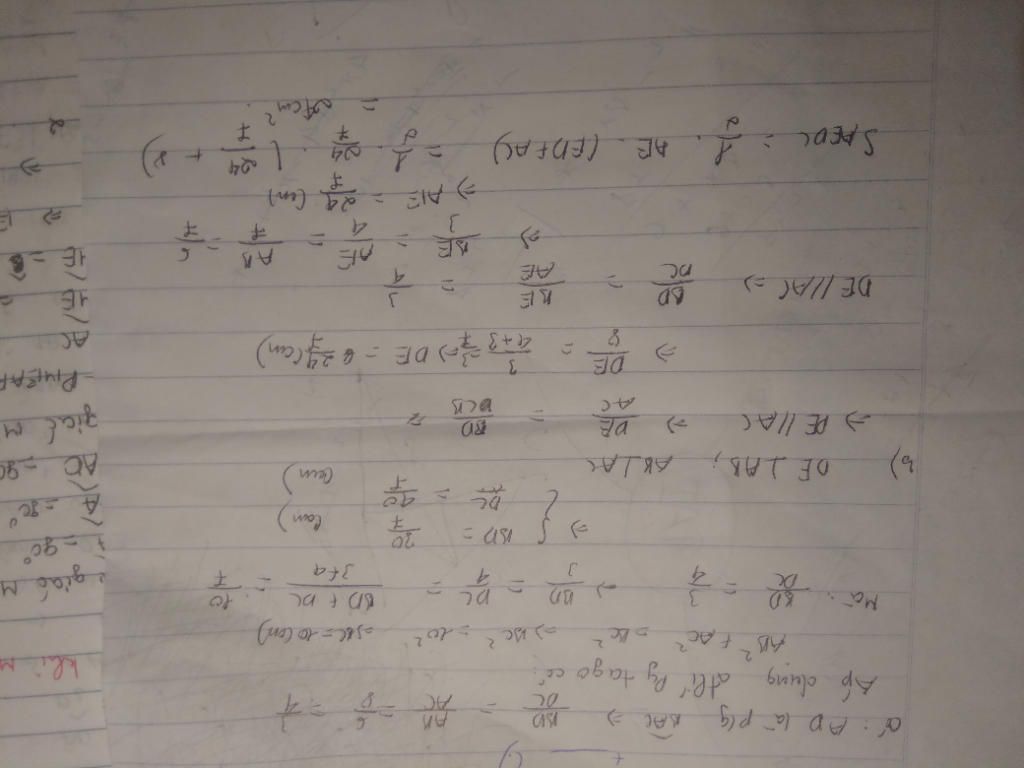 a: AD là p/g BAC ⇒ BD/DC = AB/AC = 6/8 = 3/4
Áp dụng đlí Py tago có:
AB² + AC² = BC² ⇒ BC² = 10² ⇒ BC = 10 (cm)
Mà: BD/DC = 3/4 ⇒ BD/3 = DC/4 = BD + DC/3+4 = 10/7
⇒ { BD = 30/7 (cm)
DC = 40/7 (cm)
b) DE ⊥ AB; AB ⊥ AC
⇒ DE // AC ⇒ DE/AC = BD/CB =
⇒ DE/8 = 3/4+3 = 3/7 ⇒ DE = 24/7 (cm)
DE // AC ⇒ BD/DC = BE/AE = 3/4
⇒ BE/3 = AE/4 = AB/7 = 6/7
⇒ AE = 24/7 (cm)
SAEDC = 1/2 . AE . (ED + AC) = 1/2 . 24/7 . (24/7 + 8)
khi M
giác M
= 90°
A = 90°
AD = 90
giác M
AC
1E
1E
⇒ E
⇒
2